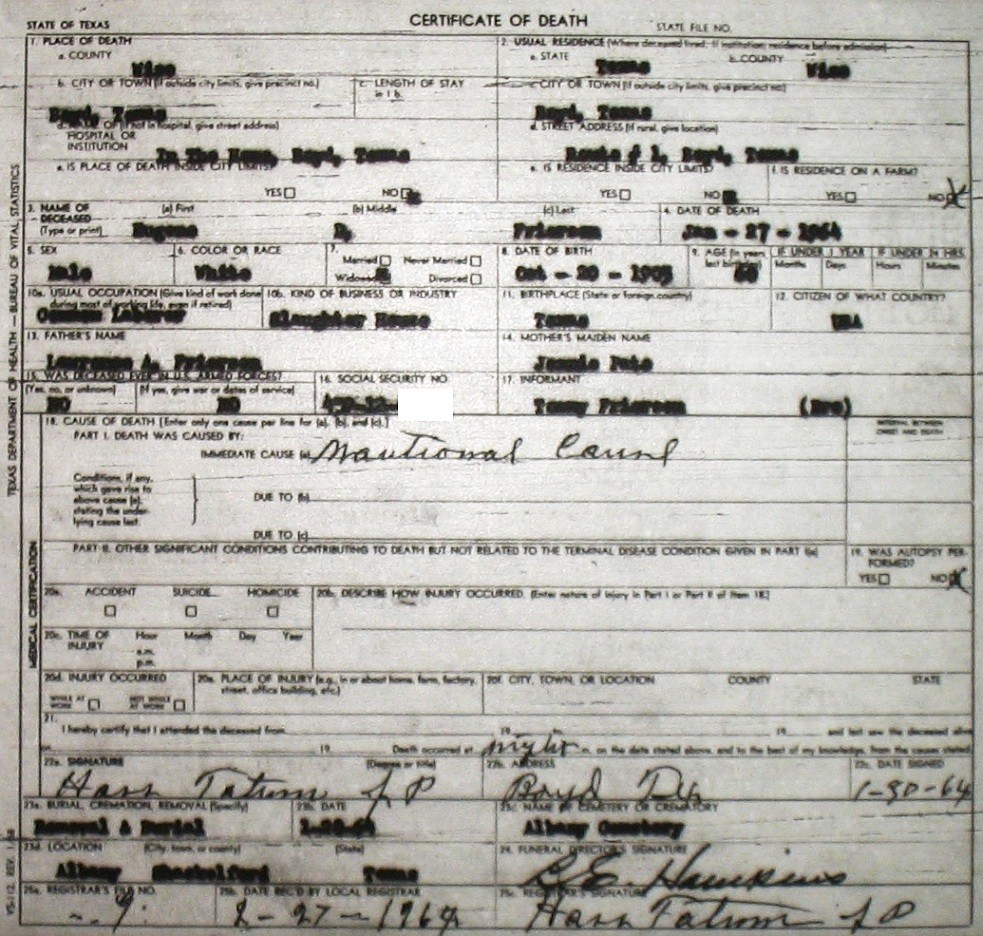 STATE OF TEXAS CERTIFICATE OF DEATH STATE FILE NO.
1. PLACE OF DEATH 2. USUAL RESIDENCE (Where deceased lived. If institution: residence before admission)
a. COUNTY a. STATE b. COUNTY
Wise Texas Wise
b. CITY OR TOWN (If outside city limits, give precinct no.) c. LENGTH OF STAY in 1 b. c. CITY OR TOWN (If outside city limits, give precinct no.)
Boyd, Texas Boyd, Texas
d. NAME OF (If not in hospital, give street address) HOSPITAL OR INSTITUTION d. STREET ADDRESS (If rural, give location)
In The Home, Boyd, Texas Route # 1, Boyd, Texas
e. IS PLACE OF DEATH INSIDE CITY LIMITS? e. IS RESIDENCE INSIDE CITY LIMITS? f. IS RESIDENCE ON A FARM?
YES NO YES NO YES NO X
3. NAME OF DECEASED (Type or print) (a) First (b) Middle (c) Last 4. DATE OF DEATH
Eugene Frierson Jan - 27 - 1964
5. SEX 6. COLOR OR RACE 7. Married Never Married Widowed Divorced 8. DATE OF BIRTH 9. AGE (In years last birthday) IF UNDER 1 YEAR IF UNDER 24 HRS.
Months Days Hours Minutes
Male White Oct - 20 - 1903 60
10a. USUAL OCCUPATION (Give kind of work done during most of working life, even if retired) 10b. KIND OF BUSINESS OR INDUSTRY 11. BIRTHPLACE (State or foreign country) 12. CITIZEN OF WHAT COUNTRY?
Common Laborer Slaughter House Texas USA
13. FATHER'S NAME 14. MOTHER'S MAIDEN NAME
Lawrence A. Frierson Jennie
15. WAS DECEASED EVER IN U.S. ARMED FORCES? 16. SOCIAL SECURITY NO. 17. INFORMANT
(Yes, no, or unknown) (If yes, give war or dates of service)
NO NO Frierson (Mrs)
18. CAUSE OF DEATH [Enter only one cause per line for (a), (b), and (c).] INTERVAL BETWEEN ONSET AND DEATH
PART I. DEATH WAS CAUSED BY:
IMMEDIATE CAUSE (a)
Conditions, if any, which gave rise to above cause (a), stating the underlying cause last.
DUE TO (b)
DUE TO (c)
PART II. OTHER SIGNIFICANT CONDITIONS CONTRIBUTING TO DEATH BUT NOT RELATED TO THE TERMINAL DISEASE CONDITION GIVEN IN PART I(a) 19. WAS AUTOPSY PERFORMED?
YES NO X
20a. ACCIDENT SUICIDE HOMICIDE 20b. DESCRIBE HOW INJURY OCCURRED. (Enter nature of injury in Part I or Part II of item 18.)
20c. TIME OF INJURY Hour Month Day Year
a.m.
p.m.
20d. INJURY OCCURRED 20e. PLACE OF INJURY (e.g., in or about home, farm, factory, street, office building, etc.) 20f. CITY, TOWN, OR LOCATION COUNTY STATE
WHILE AT WORK NOT WHILE AT WORK
21. I hereby certify that I attended the deceased from 19 19 and last saw the deceased alive
on 19 Death occurred at night m. on the date stated above, and to the best of my knowledge, from the causes stated.
22a. SIGNATURE (Degree or title) 22b. ADDRESS 22c. DATE SIGNED
Tatum J P Boyd 1-30-64
23a. BURIAL, CREMATION, REMOVAL (Specify) 23b. DATE 23c. NAME OF CEMETERY OR CREMATORY
Removal & Burial Albany Cemetery
23d. LOCATION (City, town, or county) (State) 24. FUNERAL DIRECTOR'S SIGNATURE
Albany Shackelford Texas Hawkins
25a. REGISTRAR'S FILE NO. 25b. DATE REC'D BY LOCAL REGISTRAR 25c. REGISTRAR'S SIGNATURE
9. 2-27-1964 Tatum J P
TEXAS DEPARTMENT OF HEALTH — BUREAU OF VITAL STATISTICS
MEDICAL CERTIFICATION
VS-112, REV.